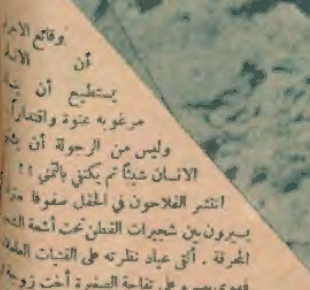 وقائع
أن
يستطيع أن
مرغوبه عنوة واقتداراً
وليس من الرجولة أن
الانسان شيئاً ثم يكتفي بالتمني !!
انتشر الفلاحون في الحقل صفوفا
يسيرون بين شجيرات القطن تحت أشعة
المحرقة . ألقى عياد نظرته على الفتيات
فهوى بصره على تفاحة الصغيرة أخت زوجة